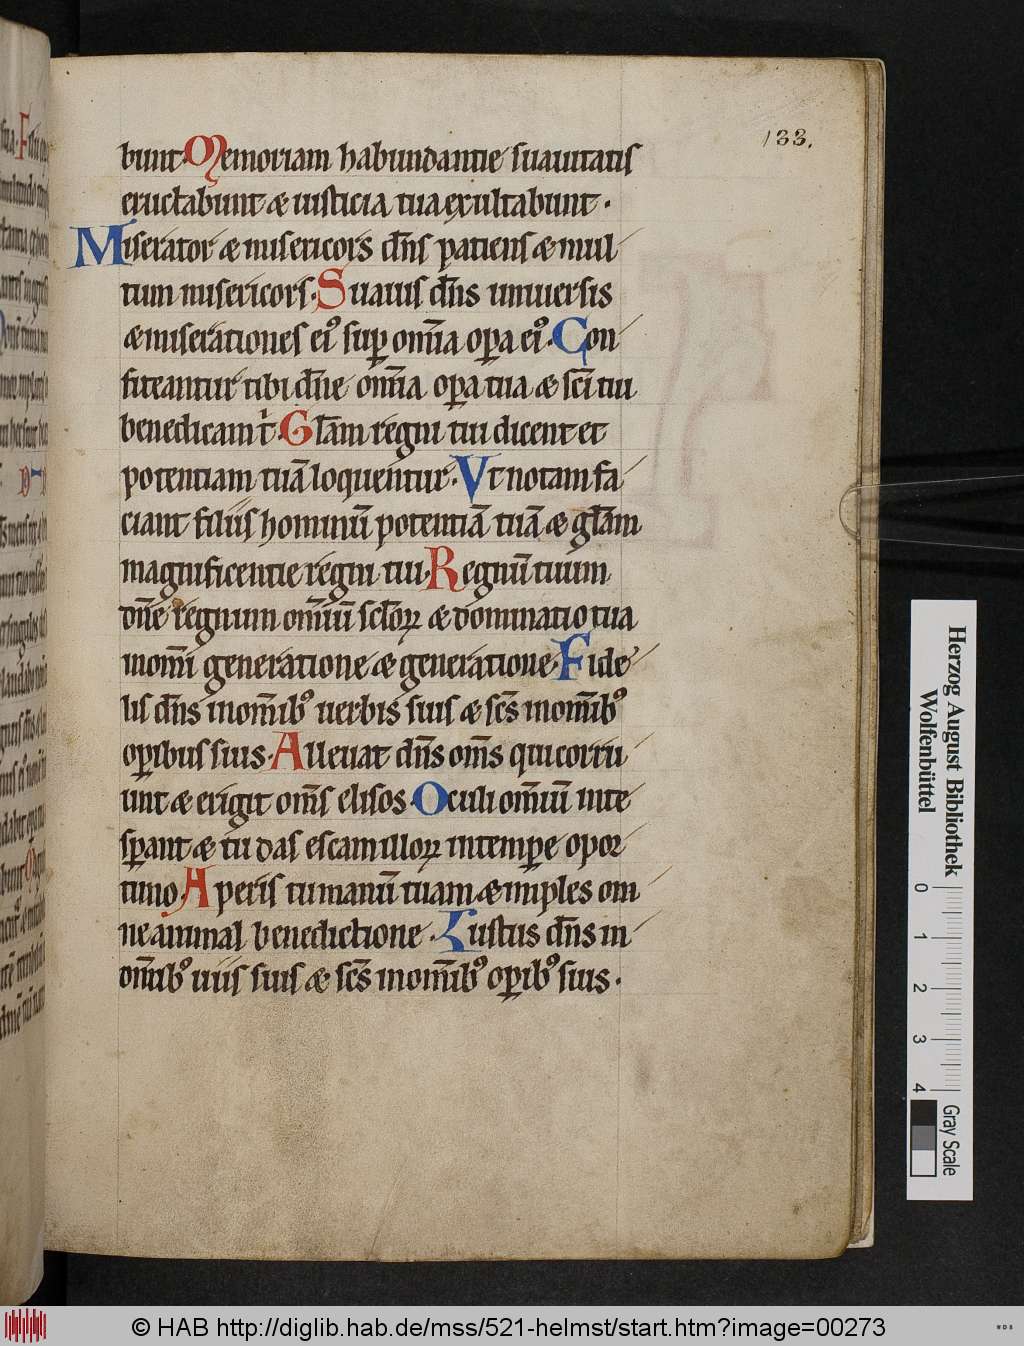 133.
bunt. Memoriam habundantie suauitatis
eructabunt & iusticia tua exultabunt.
Miserator & misericors dn̄s patiens & mul
tum misericors. Suauis dn̄s uniuersis
& miserationes eiꝰ suꝑ om̄ia oꝑa eiꝰ. Con
fiteantur tibi dn̄e om̄ia oꝑa tua & sc̄i tui
benedicant t̄. Gl̄am regni tui dicent et
potentiam tuā loquentur. Vt notam fa
ciant filiis hominū potentiā tuā & gl̄am
magnificentie regni tui. Regnū tuum
dn̄e regnum om̄iū sc̄loꝝ & dominatio tua
in om̄i generatione & generatione. Fide
lis dn̄s in om̄ibꝰ uerbis suis & sc̄s in om̄ibꝰ
oꝑibus suis. Alleuat dn̄s om̄s qui corru
unt & erigit om̄s elisos. Oculi om̄iū in te
sꝑant & tu das escam illoꝝ in temꝑe opor
tuno. Aperis tu manū tuam & imples om
ne animal benedictione. Iustus dn̄s in
om̄ibꝰ uiis suis & sc̄s in om̄ibꝰ oꝑibꝰ suis.
Herzog August Bibliothek
Wolfenbüttel
0 1 2 3 4
Gray Scale
© HAB http://diglib.hab.de/mss/521-helmst/start.htm?image=00273